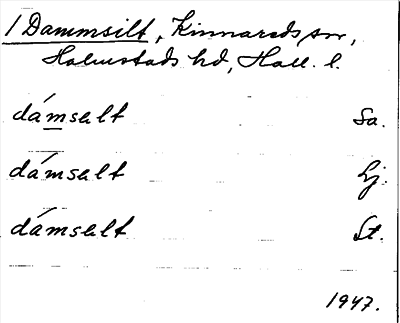 1 Dammsilt, Kinnareds sn,
Halmstads hd, Hall. l.
dámsalt Sa.
dámsalt Lj.
dámsalt St.
1947.